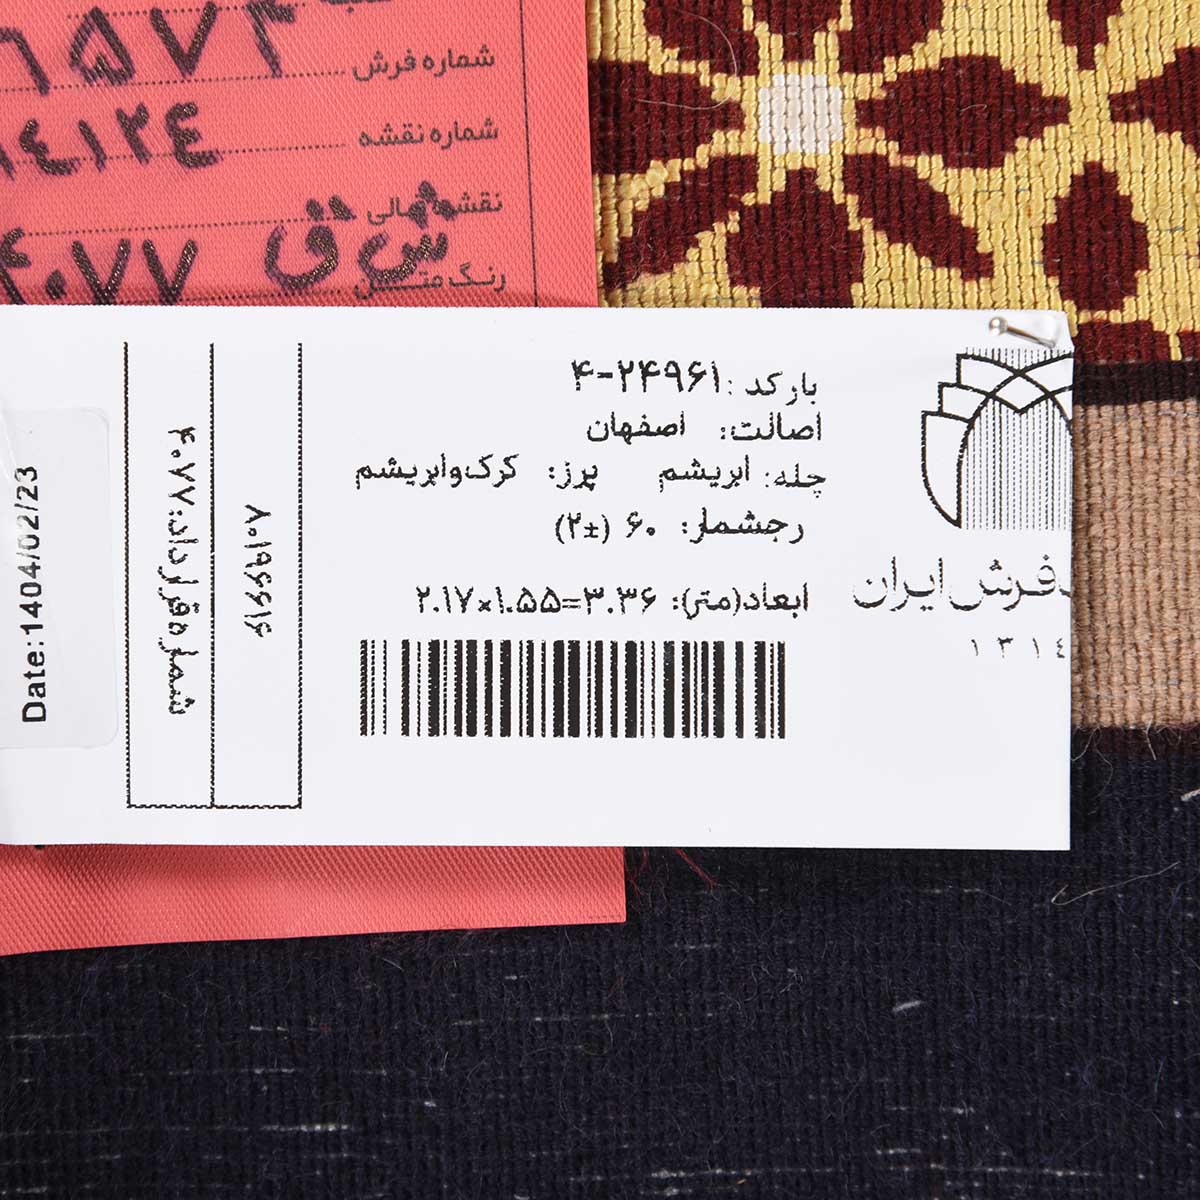 ۶۵۷۳
شماره فرش
۱۴۱۲۴
شماره نقشه
نقشه قالی
ش ق
۴۰۷۷
رنگ متن
بارکد: ۴-۲۴۹۶۱
اصالت: اصفهان
چله: ابریشم پرز: کرک و ابریشم
رجشمار: ۶۰ (±۲)
ابعاد(متر): ۲.۱۷×۱.۵۵=۳.۳۶
فرش ایران
۱۳۱٤
۸۰۱۹۶۶۱۶
شماره قرارداد: ۴۰۷۷
Date:1404/02/23